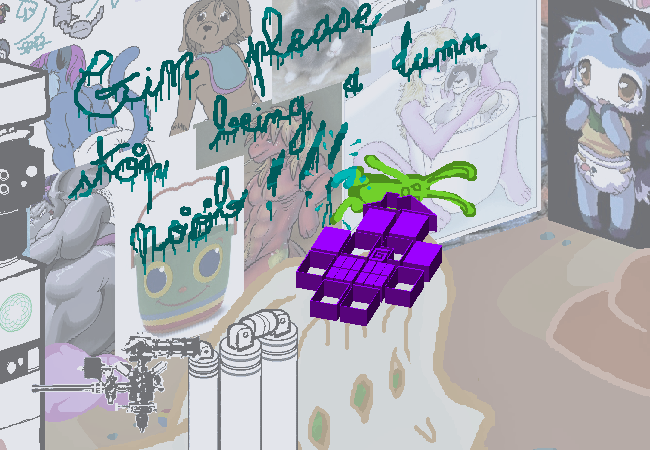 Grim please
stop being a damn
noob!!!!